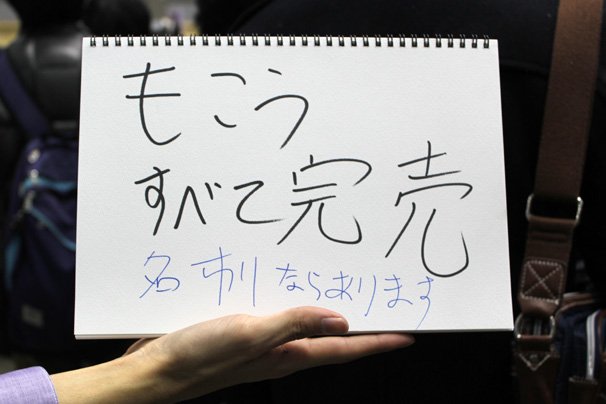 もこう
すべて完売
名刺ならあります